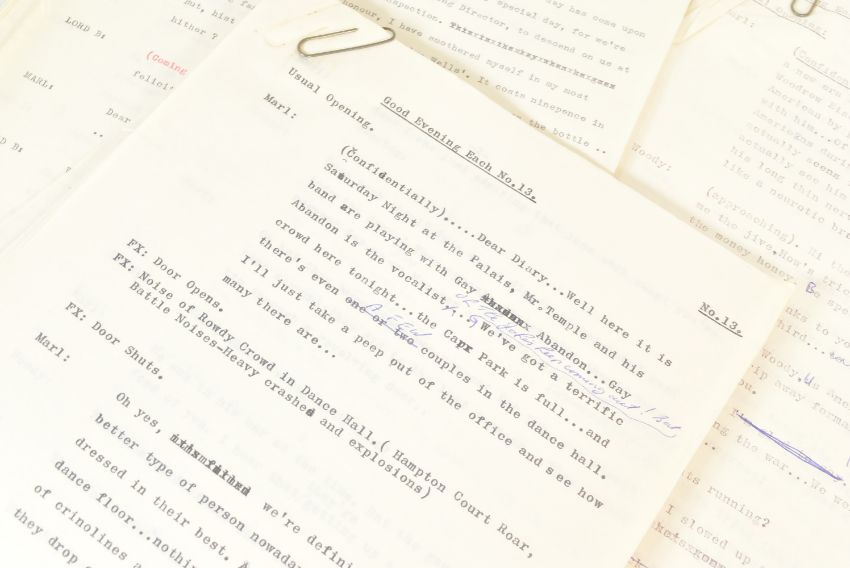 Good Evening Each No.13.
No.13.
Usual Opening.
Marl:
(Confidentially).....Dear Diary...Well here it is
Saturday Night at the Palais, Mr.Temple and his
band are playing with Gay Abandon...Gay
Abandon is the vocalist... We've got a terrific
crowd here tonight...the Car Park is full...and
there's even one or two couples in the dance hall.
A FEW
I'll just take a peep out of the office and see how
many there are...
FX: Door Opens.
FX: Noise of Rowdy Crowd in Dance Hall.( Hampton Court Roar,
Battle Noises-Heavy crashed and explosions)
FX: Door Shuts.
Marl:
Oh yes, we're defini
better type of person nowada
dressed in their best. A
dance floor...nothi
of crinolines a
they drop
LORD B:
hither ?
(Coming
MARL:
felici
Dear
..
D B:
day has come upon
special day, for we're
ing Director, to descend on us at
inspection.
honour, I have smothered myself in my most
Wells'. It costs ninepence in
the bottle ..
Marl:
(Confiden
a new era
Woodrow Eis
American by
with him...of
Americans durin
actually seems
actually see him
his long thin nerv
like a neurotic bre
Woody:
(approaching). Hi th
me the jive,How's tric
the money honey
B
e spe
nks to y
hird...
Woody,Us Ano
rip away forma
ou.
ng the war...We we
..
its running?
I slowed up